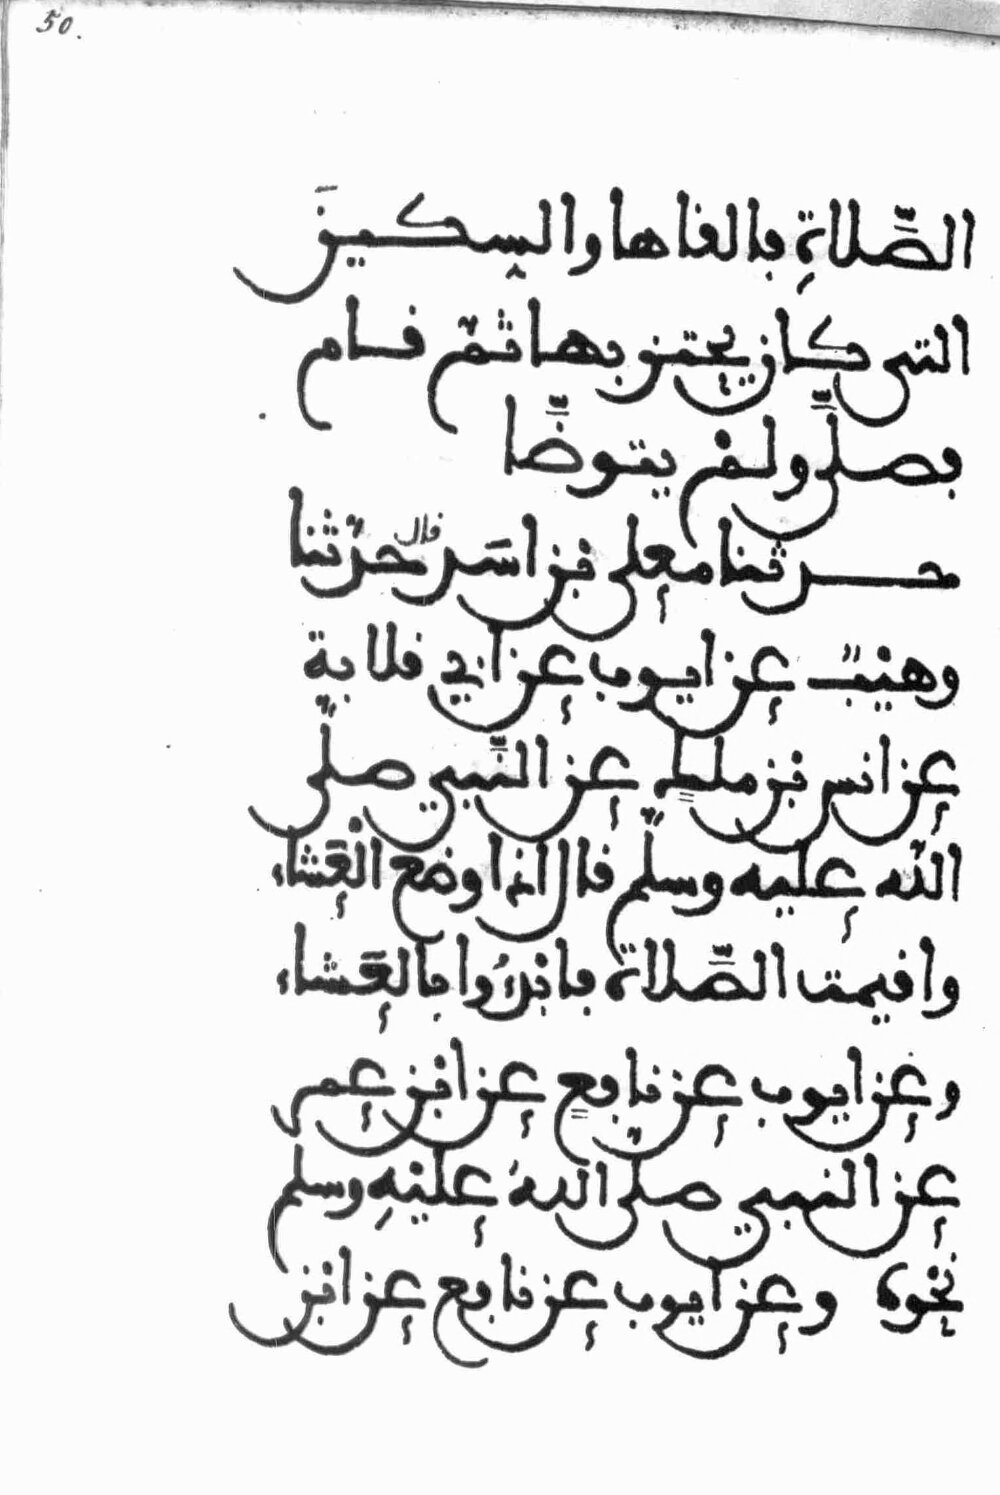 50.
الصَّلاةِ فالفاها والسكينَ
التي كان يحتز بها ثم قام
فصلَّى ولمْ يتوضَّا
حدثنا معلى بْن اسَد قال حدّثنا
وهيْبٌ عن ايوب عن ابي قلابة
عن انس بْن ملك عن النَّبي صلى
الله عليه وسلم قال اذا وضع الْعَشاء
واقيمت الصَّلاة فابْدَءُوا بالعَشاء
وعن ايوب عن نافع عن ابْن عمر
عن النبي صلى اللهُ عليْهِ وسلم
نحْوه وعن ايوب عن نافع عن ابْن